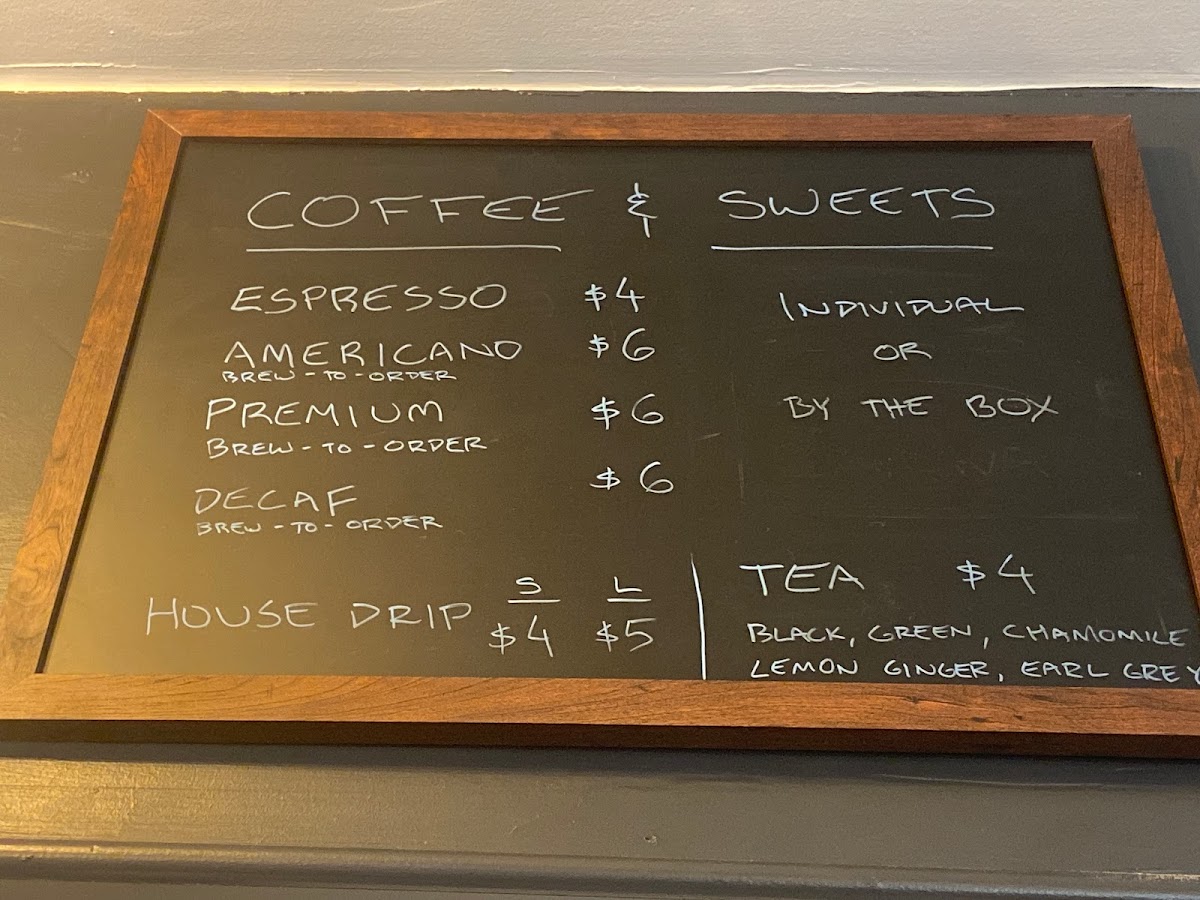 COFFEE & SWEETS
ESPRESSO $4
AMERICANO $6
BREW-TO-ORDER
PREMIUM $6
BREW-TO-ORDER
DECAF $6
BREW-TO-ORDER
HOUSE DRIP
S L
$4 $5
INDIVIDUAL
OR
BY THE BOX
TEA $4
BLACK, GREEN, CHAMOMILE
LEMON GINGER, EARL GREY